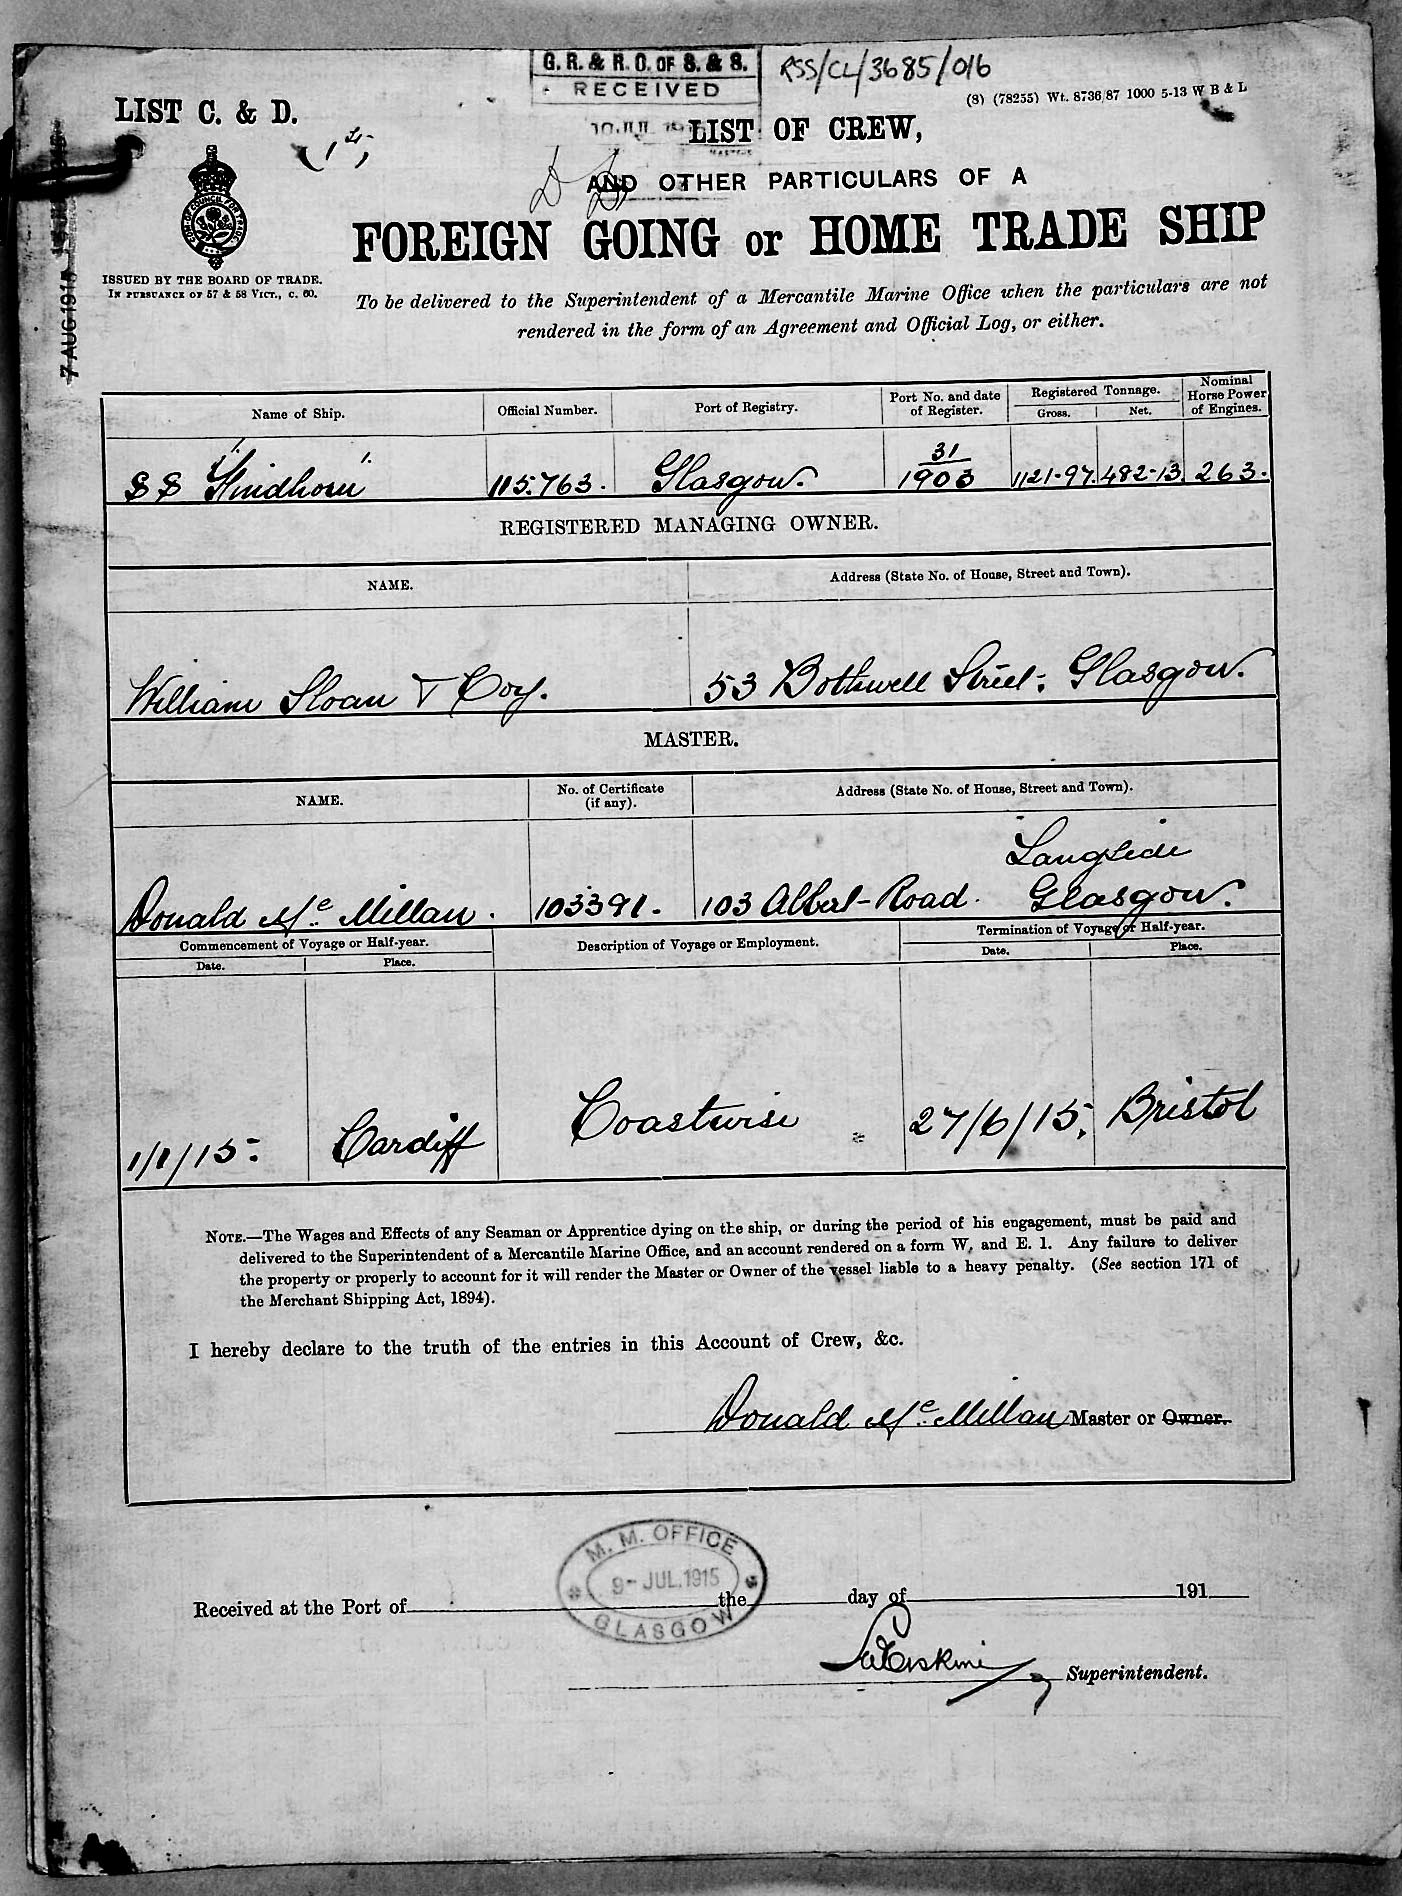 G. R. & R. O. OF S. & S.
RECEIVED
RSS/CL/3685/016
(8) (78255) Wt. 8736/87 1000 5-13 W B & L
LIST C. & D.
LIST OF CREW,
AND OTHER PARTICULARS OF A
FOREIGN GOING or HOME TRADE SHIP
ISSUED BY THE BOARD OF TRADE.
IN PURSUANCE OF 57 & 58 VICT., C. 60.
7 AUG 1915
To be delivered to the Superintendent of a Mercantile Marine Office when the particulars are not
rendered in the form of an Agreement and Official Log, or either.
Name of Ship. Official Number. Port of Registry. Port No. and date of Register. Registered Tonnage. Gross. Net. Nominal Horse Power of Engines.
SS "Findhorn" 115.763. Glasgow. 31/1903 1121-97. 482-13. 263.
REGISTERED MANAGING OWNER.
NAME. Address (State No. of House, Street and Town).
William Sloan & Coy. 53 Bothwell Street, Glasgow.
MASTER.
NAME. No. of Certificate (if any). Address (State No. of House, Street and Town).
Langside
Donald McMillan. 103391. 103 Albert Road. Glasgow.
Commencement of Voyage or Half-year. Description of Voyage or Employment. Termination of Voyage or Half-year.
Date. Place. Date. Place.
1/1/15. Cardiff Coastwise 27/6/15. Bristol
NOTE.—The Wages and Effects of any Seaman or Apprentice dying on the ship, or during the period of his engagement, must be paid and
delivered to the Superintendent of a Mercantile Marine Office, and an account rendered on a form W. and E. 1. Any failure to deliver
the property or properly to account for it will render the Master or Owner of the vessel liable to a heavy penalty. (See section 171 of
the Merchant Shipping Act, 1894).
I hereby declare to the truth of the entries in this Account of Crew, &c.
Donald McMillan Master or Owner.
M. M. OFFICE
9-JUL.1915
GLASGOW
Received at the Port of the day of 191
Erskine Superintendent.